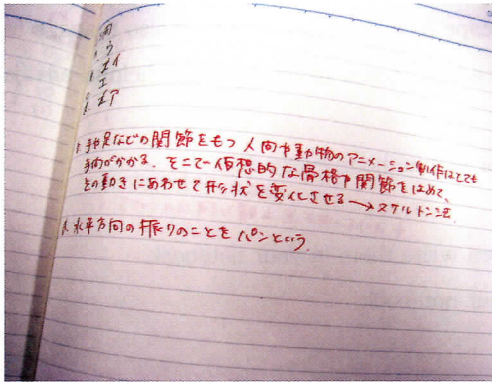 ウ
オイ
エ
オア
手や足などの関節をもつ人間や動物のアニメーション制作はとても
手間がかかる。そこで仮想的な骨格や関節をはめて、
その動きにあわせて形状を変化させる→スケルトン法
水平方向の振りのことをパンという。